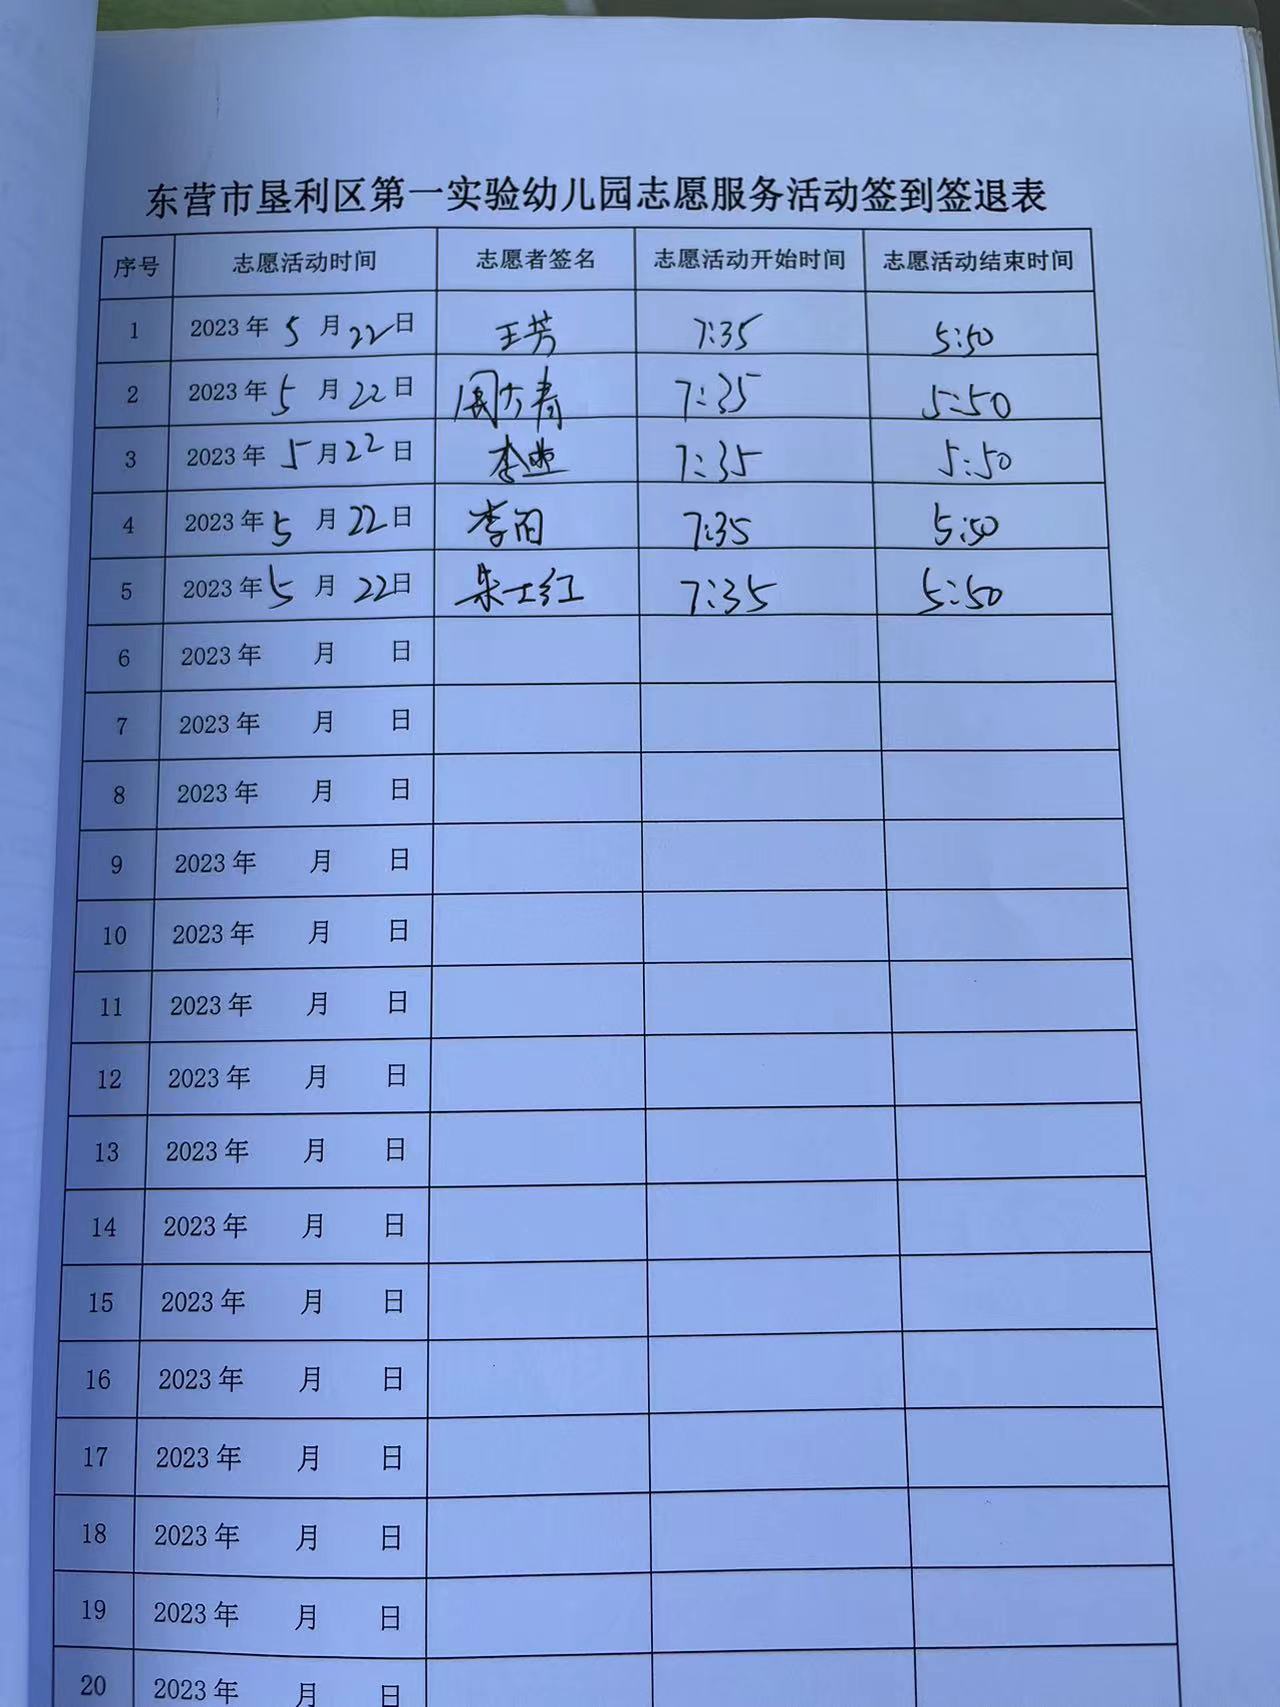 东营市垦利区第一实验幼儿园志愿服务活动签到签退表
序号 志愿活动时间 志愿者签名 志愿活动开始时间 志愿活动结束时间
1 2023年 5 月 22 日 王芳 7:35 5:50
2 2023年 5 月 22 日 7:35 5:50
3 2023年 5 月 22 日 李 7:35 5:50
4 2023年 5 月 22 日 李 7:35 5:50
5 2023年 5 月 22 日 朱士红 7:35 5:50
6 2023年 月 日
7 2023年 月 日
8 2023年 月 日
9 2023年 月 日
10 2023年 月 日
11 2023年 月 日
12 2023年 月 日
13 2023年 月 日
14 2023年 月 日
15 2023年 月 日
16 2023年 月 日
17 2023年 月 日
18 2023年 月 日
19 2023年 月 日
20 2023年 月 日